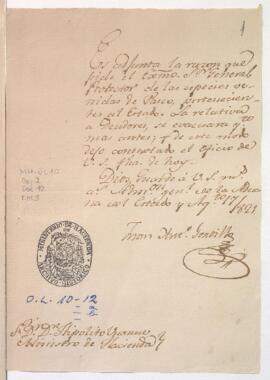 1
Es adjunta la razon que
pide el Exmo. Sr. General
Protector de las especies ve-
nidas de Pasco, pertenecien-
tes al Estado. La relativa
a Deudores, se evacuará
mas antes; y de este modo
dejo contextado el oficio de
V. S. fha. de hoy.
Dios guarde á V. S. ms.
as. Adm.on gen.l de la Adua
na del Estado y Ag.to 17/
1821
MINISTERIO DE HACIENDA
O.L. 10-12
Hipolito Unanue
Ministro de Hacienda